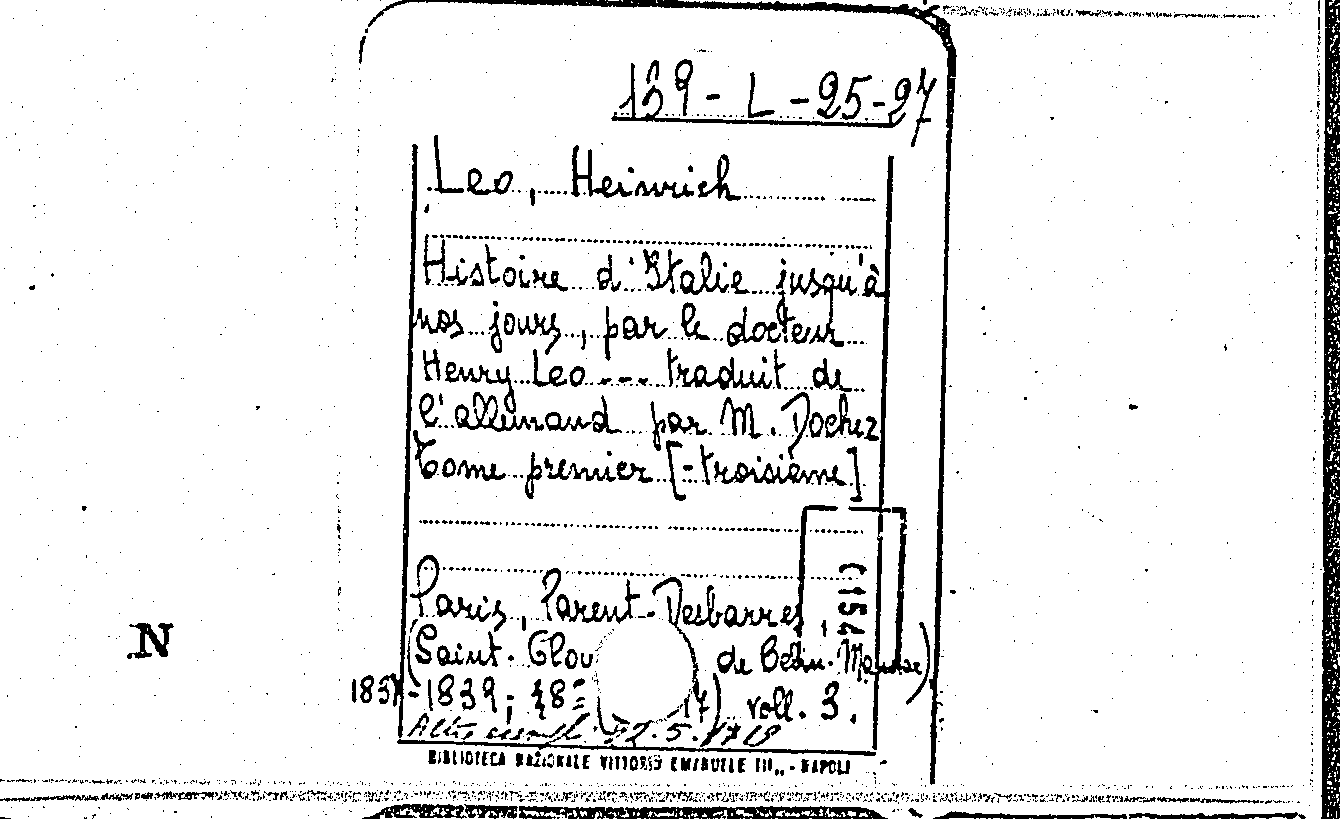 139 - L - 25-27
Leo, Heinrich
Histoire d'Italie jusqu'à
nos jours, par le docteur
Henry Léo --- traduit de
l'allemand par M. Dochez
Tome premier [-troisième]
Paris, Parent-Desbarres,
(Saint-Clou de Belin-Mandar)
1837-1839; 8° voll. 3.
(154
N
BIBLIOTECA NAZIONALE VITTORIO EMANUELE III„ - NAPOLI